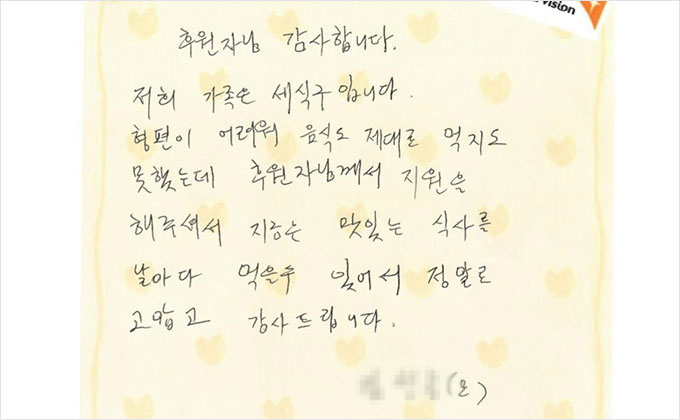 vision
후원자님 감사합니다.
저희 가족은 세식구입니다.
형편이 어려워 음식도 제대로 먹지도
못했는데 후원자님께서 지원을
해주셔서 지금은 맛있는 식사를
날마다 먹을수 있어서 정말로
고맙고 감사드립니다.
(모)